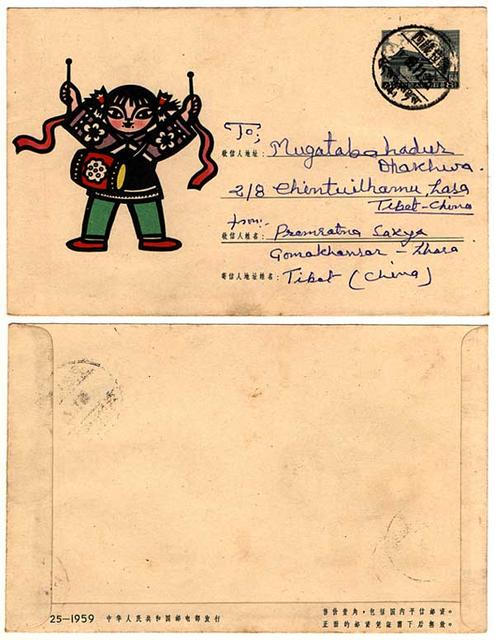 To;
收信人地址: Mugatabahadur
Dhakhwa.
2/8 Chentuilhamu Lasa
Tibet-China
from:-
收信人姓名: Premratna Sakya
Gomakhansar - Lhasa
寄信人地址姓名: Tibet (China)
25-1959 中华人民共和国邮电部发行
每份壹角,包括国内平信邮资。
正面的邮资凭证剪下后无效。